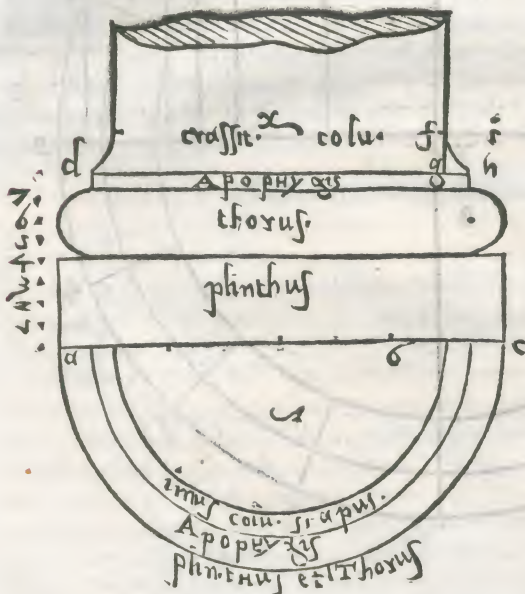 crassit. colu. f
d h
Apophygis
thorus.
plinthus
a b c
imus colu. scapus.
Apophygis
plinthus et Thorus